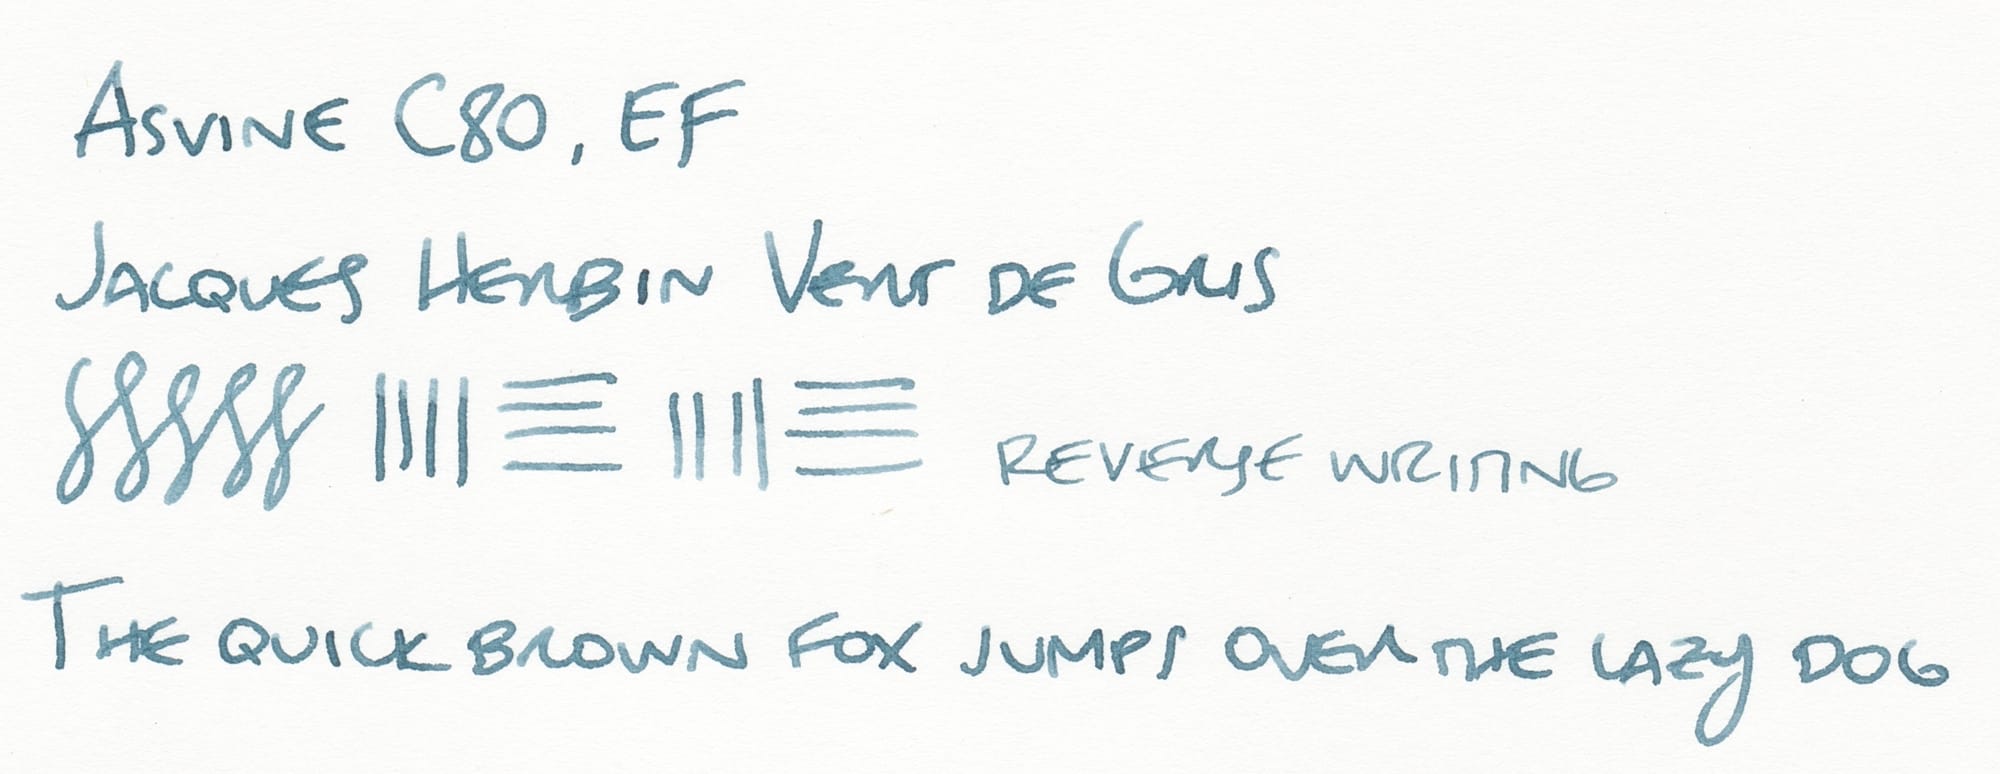 Asvine C80, EF
Jacques Herbin Vert de Gris
Reverse writing
The quick brown fox jumps over the lazy dog